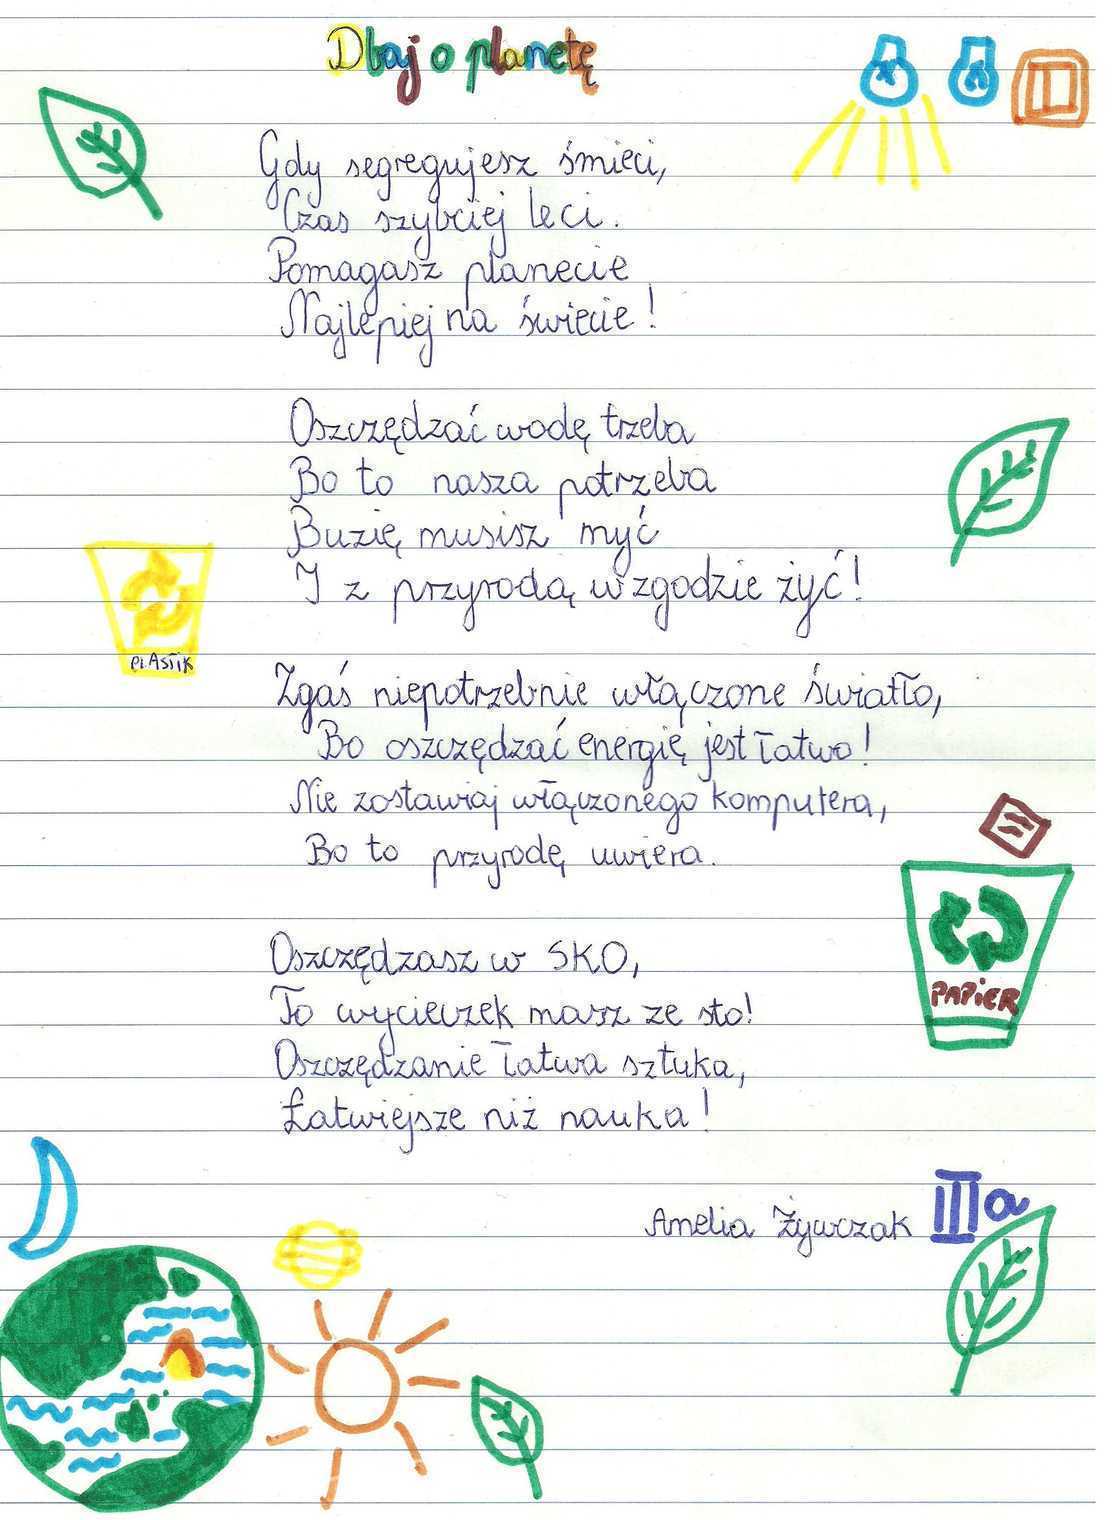 Dbaj o planetę
Gdy segregujesz śmieci,
Czas szybciej leci.
Pomagasz planecie
Najlepiej na świecie!
Oszczędzać wodę trzeba
Bo to nasza potrzeba
Buzię musisz myć
I z przyrodą w zgodzie żyć!
PLASTIK
Zgaś niepotrzebnie włączone światło,
Bo oszczędzać energię jest łatwo!
Nie zostawiaj włączonego komputera,
Bo to przyrodę uwiera.
PAPIER
Oszczędzasz w SKO,
To wycieczek masz ze sto!
Oszczędzanie łatwa sztuka,
Łatwiejsze niż nauka!
Amelia Żywczak IIIa